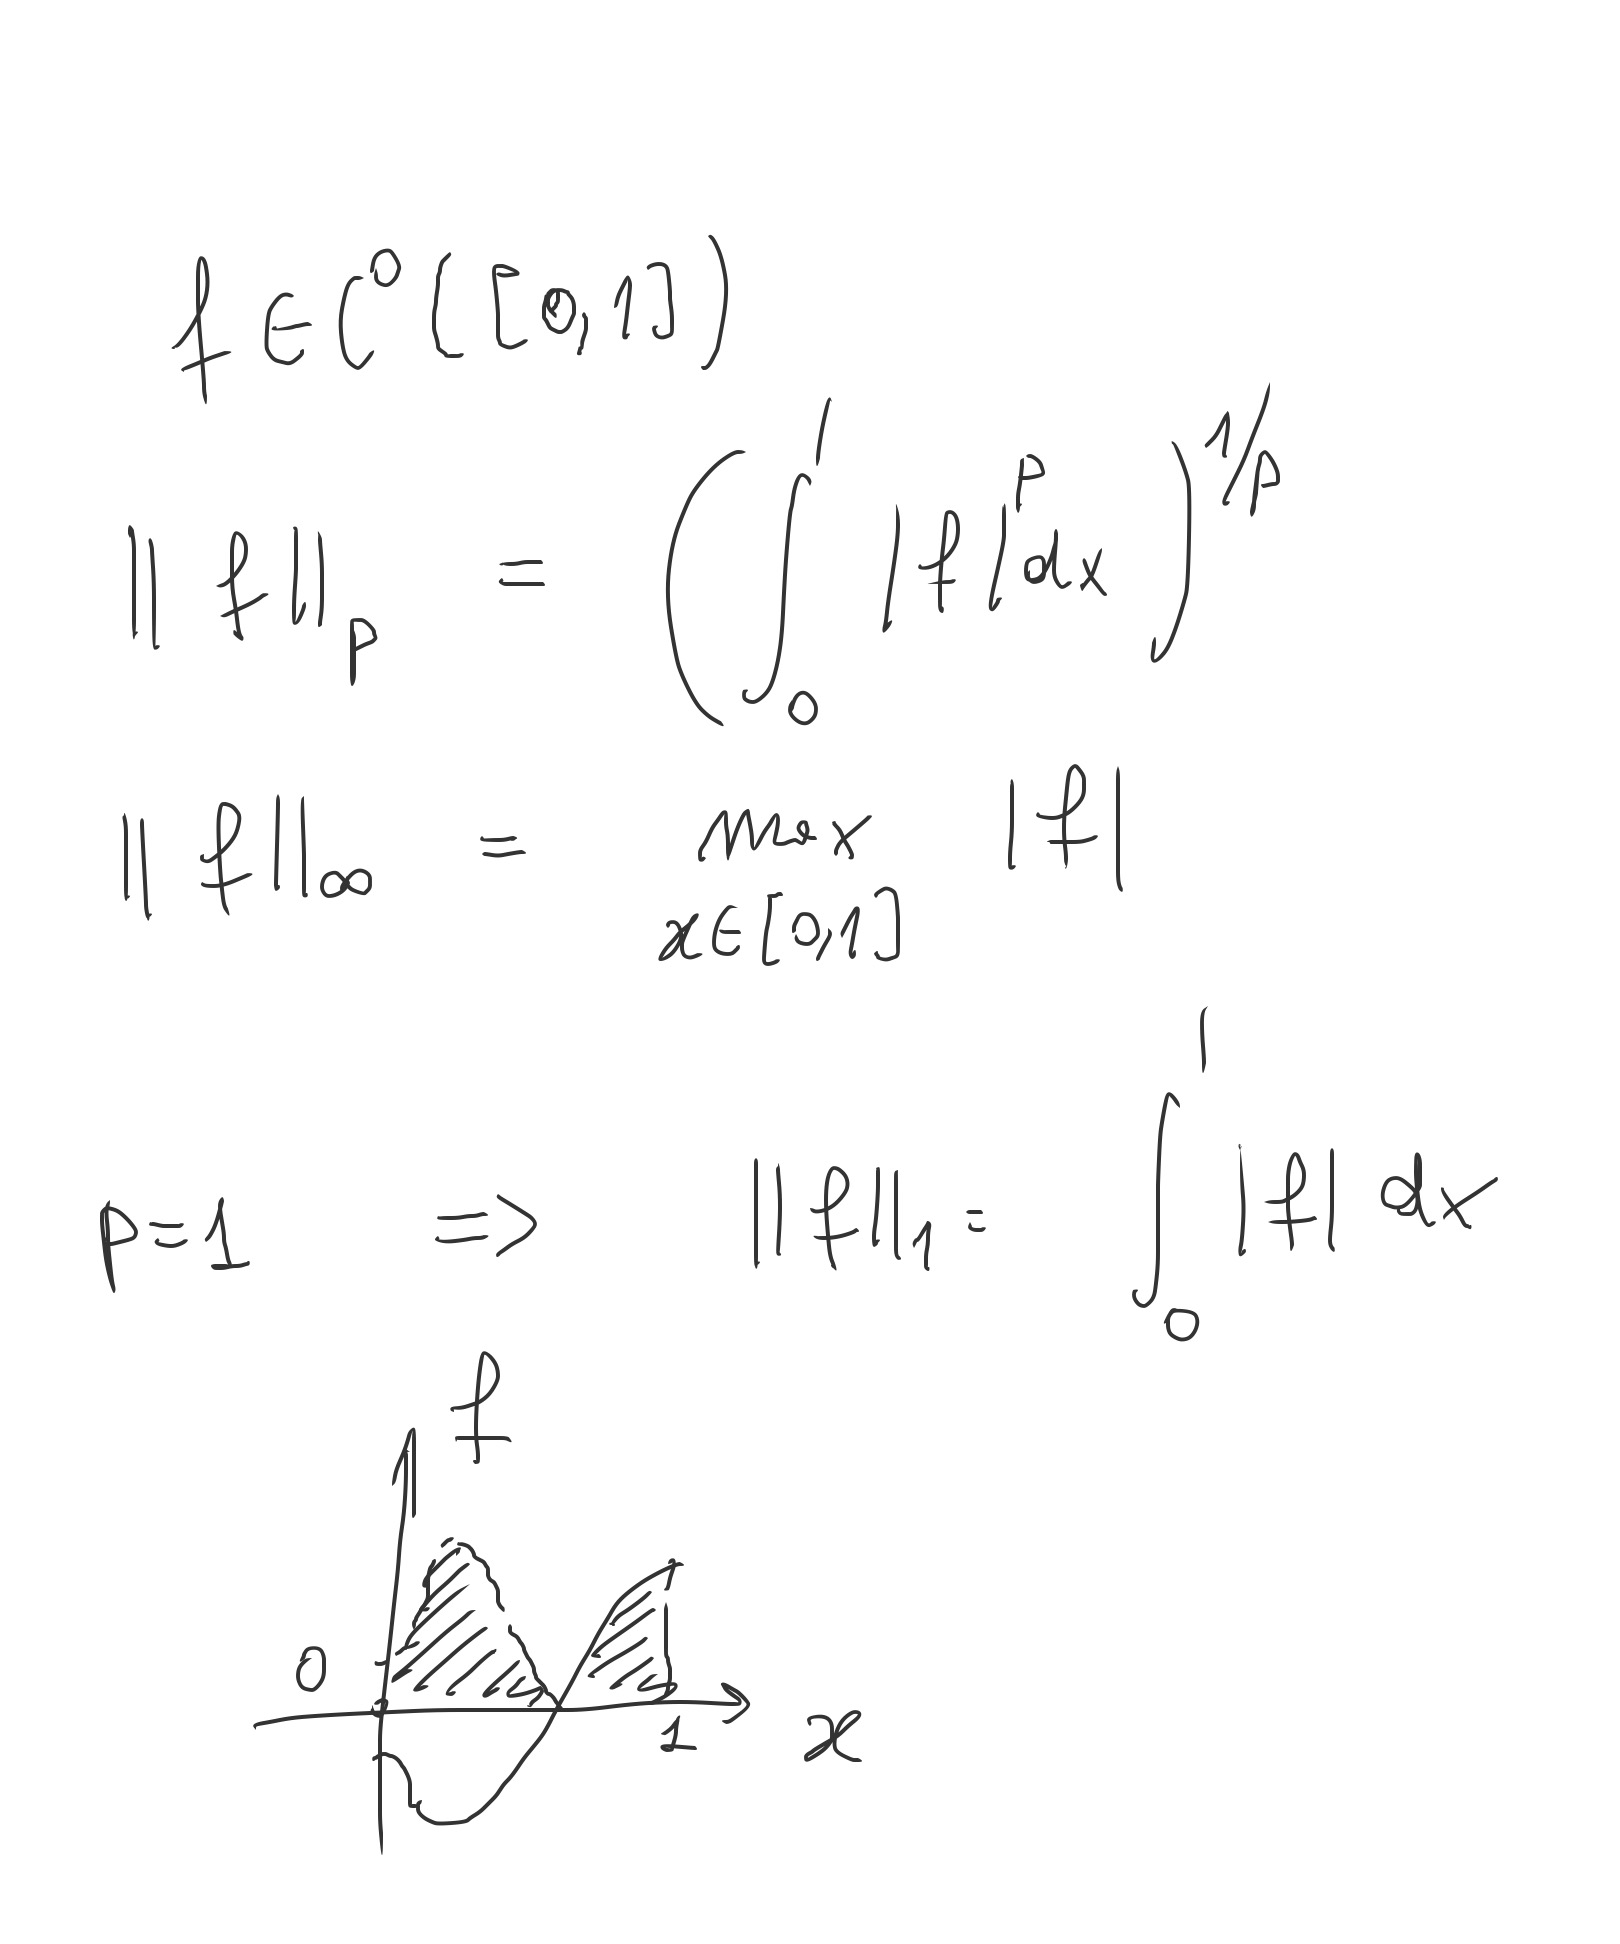 f ∈ C⁰([0,1])
‖f‖ₚ = (∫₀¹ |f|ᵖ dx)^{1/p}
‖f‖_∞ = max |f|
x∈[0,1]
p=1 ⇒ ‖f‖₁ = ∫₀¹ |f| dx
f
0
1
x